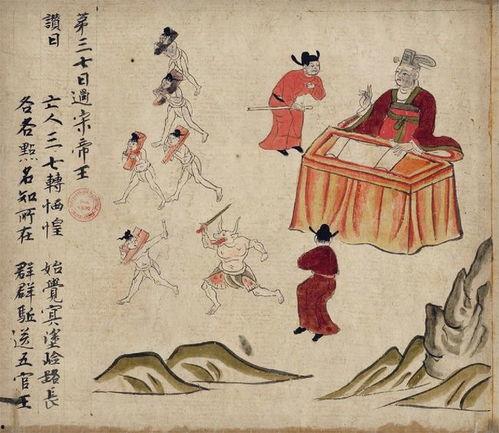 第三七日過宋帝王
讚曰
亡人三七轉恓惶 始覺冥塗崄路長
各各點名知所在 群群駈送五官王